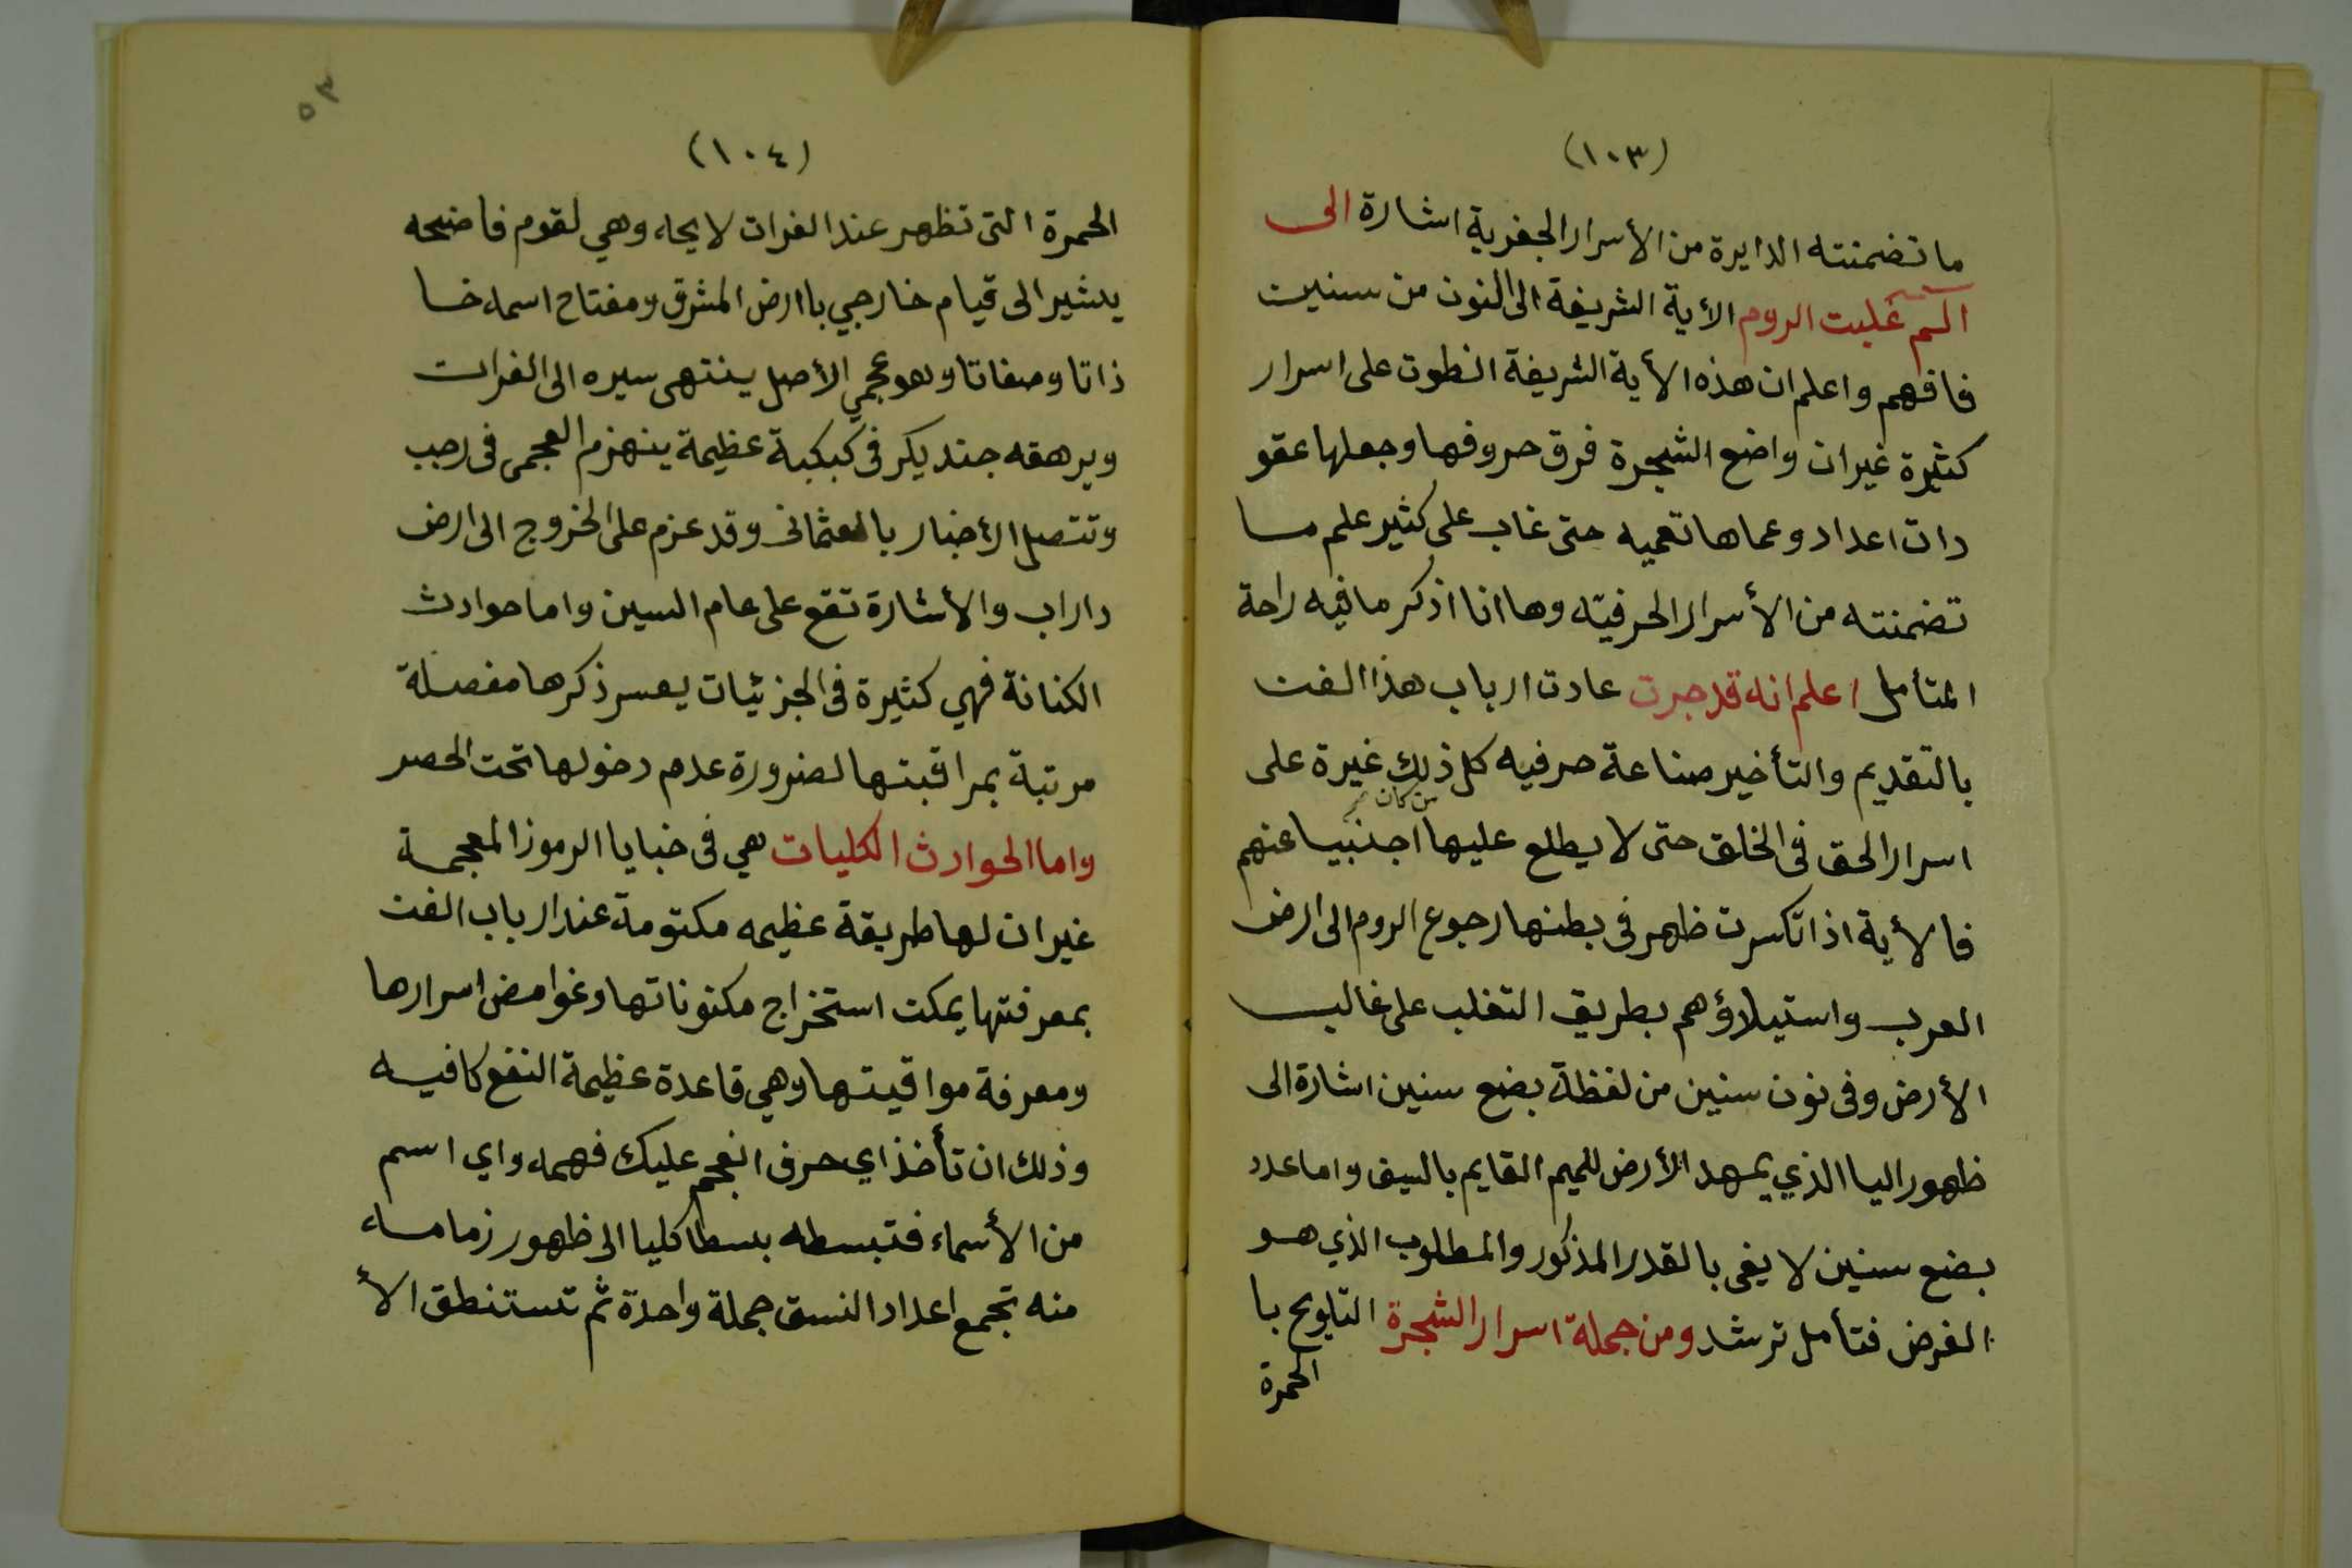 (١٠٣)
ما تضمنته الدايرة من الأسرار الجفرية اشارة الى
الم غلبت الروم الأية الشريفة الى النون من سنين
فافهم واعلم ان هذه الأية الشريفة انطوت على اسرار
كثيرة غير ان واضع الشجرة فرق حروفها وجعلها عقو
دات اعداد وعماها تعميه حتى غاب على كثير علم ما
تضمنته من الأسرار الحرفيته وها انا اذكر ما فيه راحة
المتأمل اعلم انه قد جرت عادت ارباب هذا الفن
بالتقديم والتأخير صناعة حرفيه كل ذلك غيرة على
من كان
اسرار الحق فى الخلق حتى لا يطلع عليها اجنبيا عنهم
فالأية اذا تكسرت ظهر فى بطنها رجوع الروم الى ارض
العرب واستيلاؤهم بطريق التغلب على غالب
الأرض وفى نون سنين من لفظة بضع سنين اشارة الى
ظهور اليا الذي يمهد الأرض للميم القايم بالسيف واما عدد
بضع سنين لا يفى بالقدر المذكور والمطلوب الذي هو
الغرض فتأمل ترشد ومن جملة اسرار الشجرة التلويح با
الحمرة
٥٣
(١٠٤)
الحمرة التى تظهر عند الفرات لايحاء وهي لقوم فاضحه
يشير الى قيام خارجي باارض المشرق ومفتاح اسمه خا
ذاتا وصفاتا وهو عجمي الأصل ينتهى سيره الى الفرات
ويرهقه جند يكر فى كبكبة عظيمة ينهزم العجمى فى رجب
وتتصل الأخبار بالعثمانى وقد عزم على الخروج الى ارض
داراب والأشارة تقع على عام السين واما حوادث
الكنانة فهي كثيرة فى الجزئيات يعسر ذكرها مفصلة
مرتبة بمراقبتها لضرورة عدم دخولها تحت الحصر
واما الحوادث الكليات هي فى خبايا الرموز المعجمة
غير ان لها طريقة عظيمه مكتومة عند ارباب الفن
بمعرفتها يمكن استخراج مكنوناتها وغوامض اسرارها
ومعرفة مواقيتها وهي قاعدة عظيمة النفع كافيه
وذلك ان تأخذ اي حرف انعجم عليك فهمه واي اسم
من الأسماء فتبسطه بسطا كليا الى ظهور زمامه
منه تجمع اعداد النسق جملة واحدة ثم تستنطق الأ